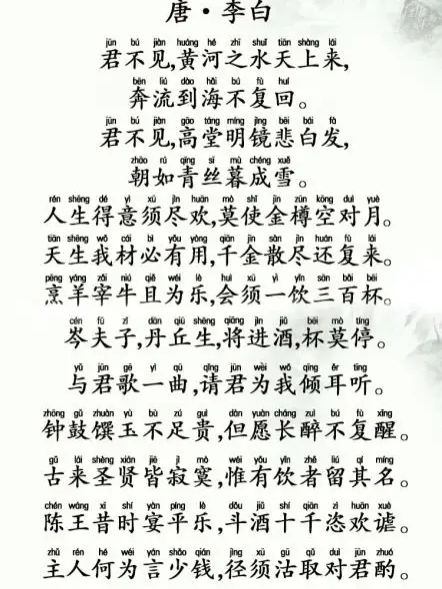 唐·李白
jūn bú jiàn huáng hé zhī shuǐ tiān shàng lái
君不见,黄河之水天上来,
bēn liú dào hǎi bú fù huí
奔流到海不复回。
jūn bú jiàn gāo táng míng jìng bēi bái fà
君不见,高堂明镜悲白发,
zhāo rú qīng sī mù chéng xuě
朝如青丝暮成雪。
rén shēng dé yì xū jìn huān mò shǐ jīn zūn kōng duì yuè
人生得意须尽欢,莫使金樽空对月。
tiān shēng wǒ cái bì yǒu yòng qiān jīn sàn jìn huán fù lái
天生我材必有用,千金散尽还复来。
pēng yáng zǎi niú qiě wéi lè huì xū yì yǐn sān bǎi bēi
烹羊宰牛且为乐,会须一饮三百杯。
cén fū zǐ dān qiū shēng qiāng jìn jiǔ bēi mò tíng
岑夫子,丹丘生,将进酒,杯莫停。
yǔ jūn gē yì qǔ qǐng jūn wèi wǒ qīng ěr tīng
与君歌一曲,请君为我倾耳听。
zhōng gǔ zhuàn yù bù zú guì dàn yuàn cháng zuì bú fù xǐng
钟鼓馔玉不足贵,但愿长醉不复醒。
gǔ lái shèng xián jiē jì mò wéi yǒu yǐn zhě liú qí míng
古来圣贤皆寂寞,惟有饮者留其名。
chén wáng xī shí yàn píng lè dǒu jiǔ shí qiān zì huān xuè
陈王昔时宴平乐,斗酒十千恣欢谑。
zhǔ rén hé wéi yán shǎo qián jìng xū gū qǔ duì jūn zhuó
主人何为言少钱,径须沽取对君酌。